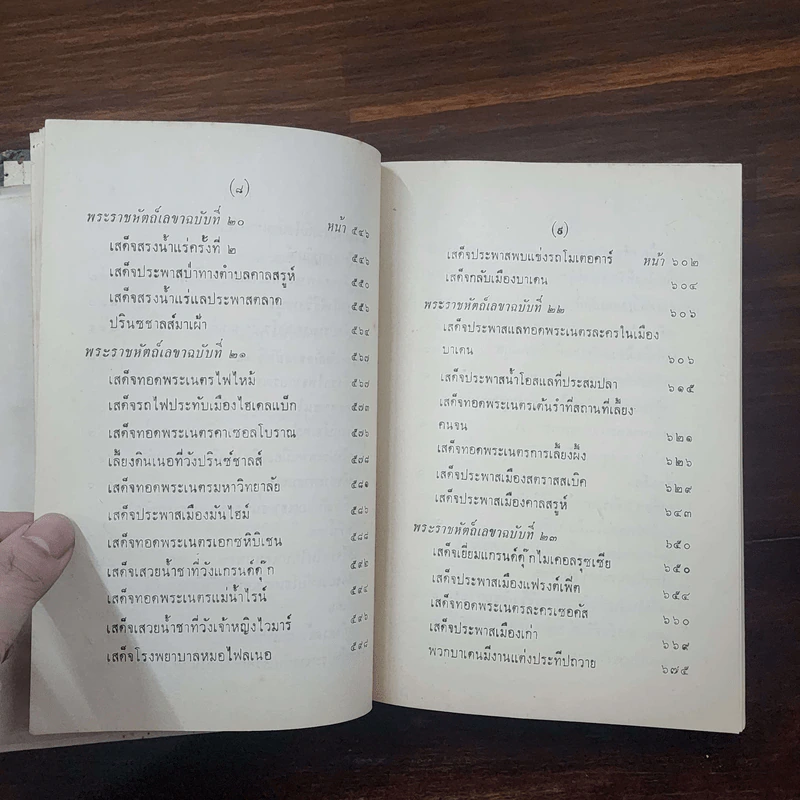 (๘)
พระราชหัตถ์เลขาฉบับที่ ๒๐ หน้า ๕๔๖
เสด็จสรงน้ำแร่ครั้งที่ ๒ ๕๔๖
เสด็จประพาสป่าทางตำบลคาลสรูห์ ๕๕๐
เสด็จสรงน้ำแร่แลประพาสตลาด ๕๕๖
ปรินซชาลส์มาเฝ้า ๕๖๔
พระราชหัตถ์เลขาฉบับที่ ๒๑ ๕๖๗
เสด็จทอดพระเนตรไฟไหม้ ๕๖๗
เสด็จรถไฟประทับเมืองไฮเดลแบ็ก ๕๗๓
เสด็จทอดพระเนตรคาเซอลโบราณ ๕๗๖
เลี้ยงดินเนอที่วังปรินซ์ชาลส์ ๕๗๘
เสด็จทอดพระเนตรมหาวิทยาลัย ๕๘๑
เสด็จประพาสเมืองมันไฮม์ ๕๘๖
เสด็จทอดพระเนตรเอกซหิบิเชน ๕๘๘
เสด็จเสวยน้ำชาที่วังแกรนด์ดุ๊ก ๕๙๒
เสด็จทอดพระเนตรแม่น้ำไรน์ ๕๙๔
เสด็จเสวยน้ำชาที่วังเจ้าหญิงไวมาร์ ๕๙๖
เสด็จโรงพยาบาลหมอไฟลเนอ ๕๙๘
(๙)
เสด็จประพาสพบแข่งรถโมเตอคาร์ หน้า ๖๐๒
เสด็จกลับเมืองบาเดน ๖๐๔
พระราชหัตถ์เลขาฉบับที่ ๒๒ ๖๐๖
เสด็จประพาสแลทอดพระเนตรละครในเมือง
บาเดน ๖๐๖
เสด็จประพาสน้ำโอสแลที่ประสมปลา ๖๑๕
เสด็จทอดพระเนตรเต้นรำที่สถานที่เลี้ยง
คนจน ๖๒๑
เสด็จทอดพระเนตรการเลี้ยงผึ้ง ๖๒๖
เสด็จประพาสเมืองสตราสสเบิค ๖๒๙
เสด็จประพาสเมืองคาลสรูห์ ๖๔๓
พระราชหัตถ์เลขาฉบับที่ ๒๓ ๖๕๐
เสด็จเยี่ยมแกรนด์ดุ๊กไมเคอลรุซเซีย ๖๕๐
เสด็จประพาสเมืองแฟรงต์เฟิต ๖๕๔
เสด็จทอดพระเนตรละครเซอคัส ๖๖๐
เสด็จประพาสเมืองเก่า ๖๖๙
พวกบาเดนมีงานแต่งประทีปถวาย ๖๗๕